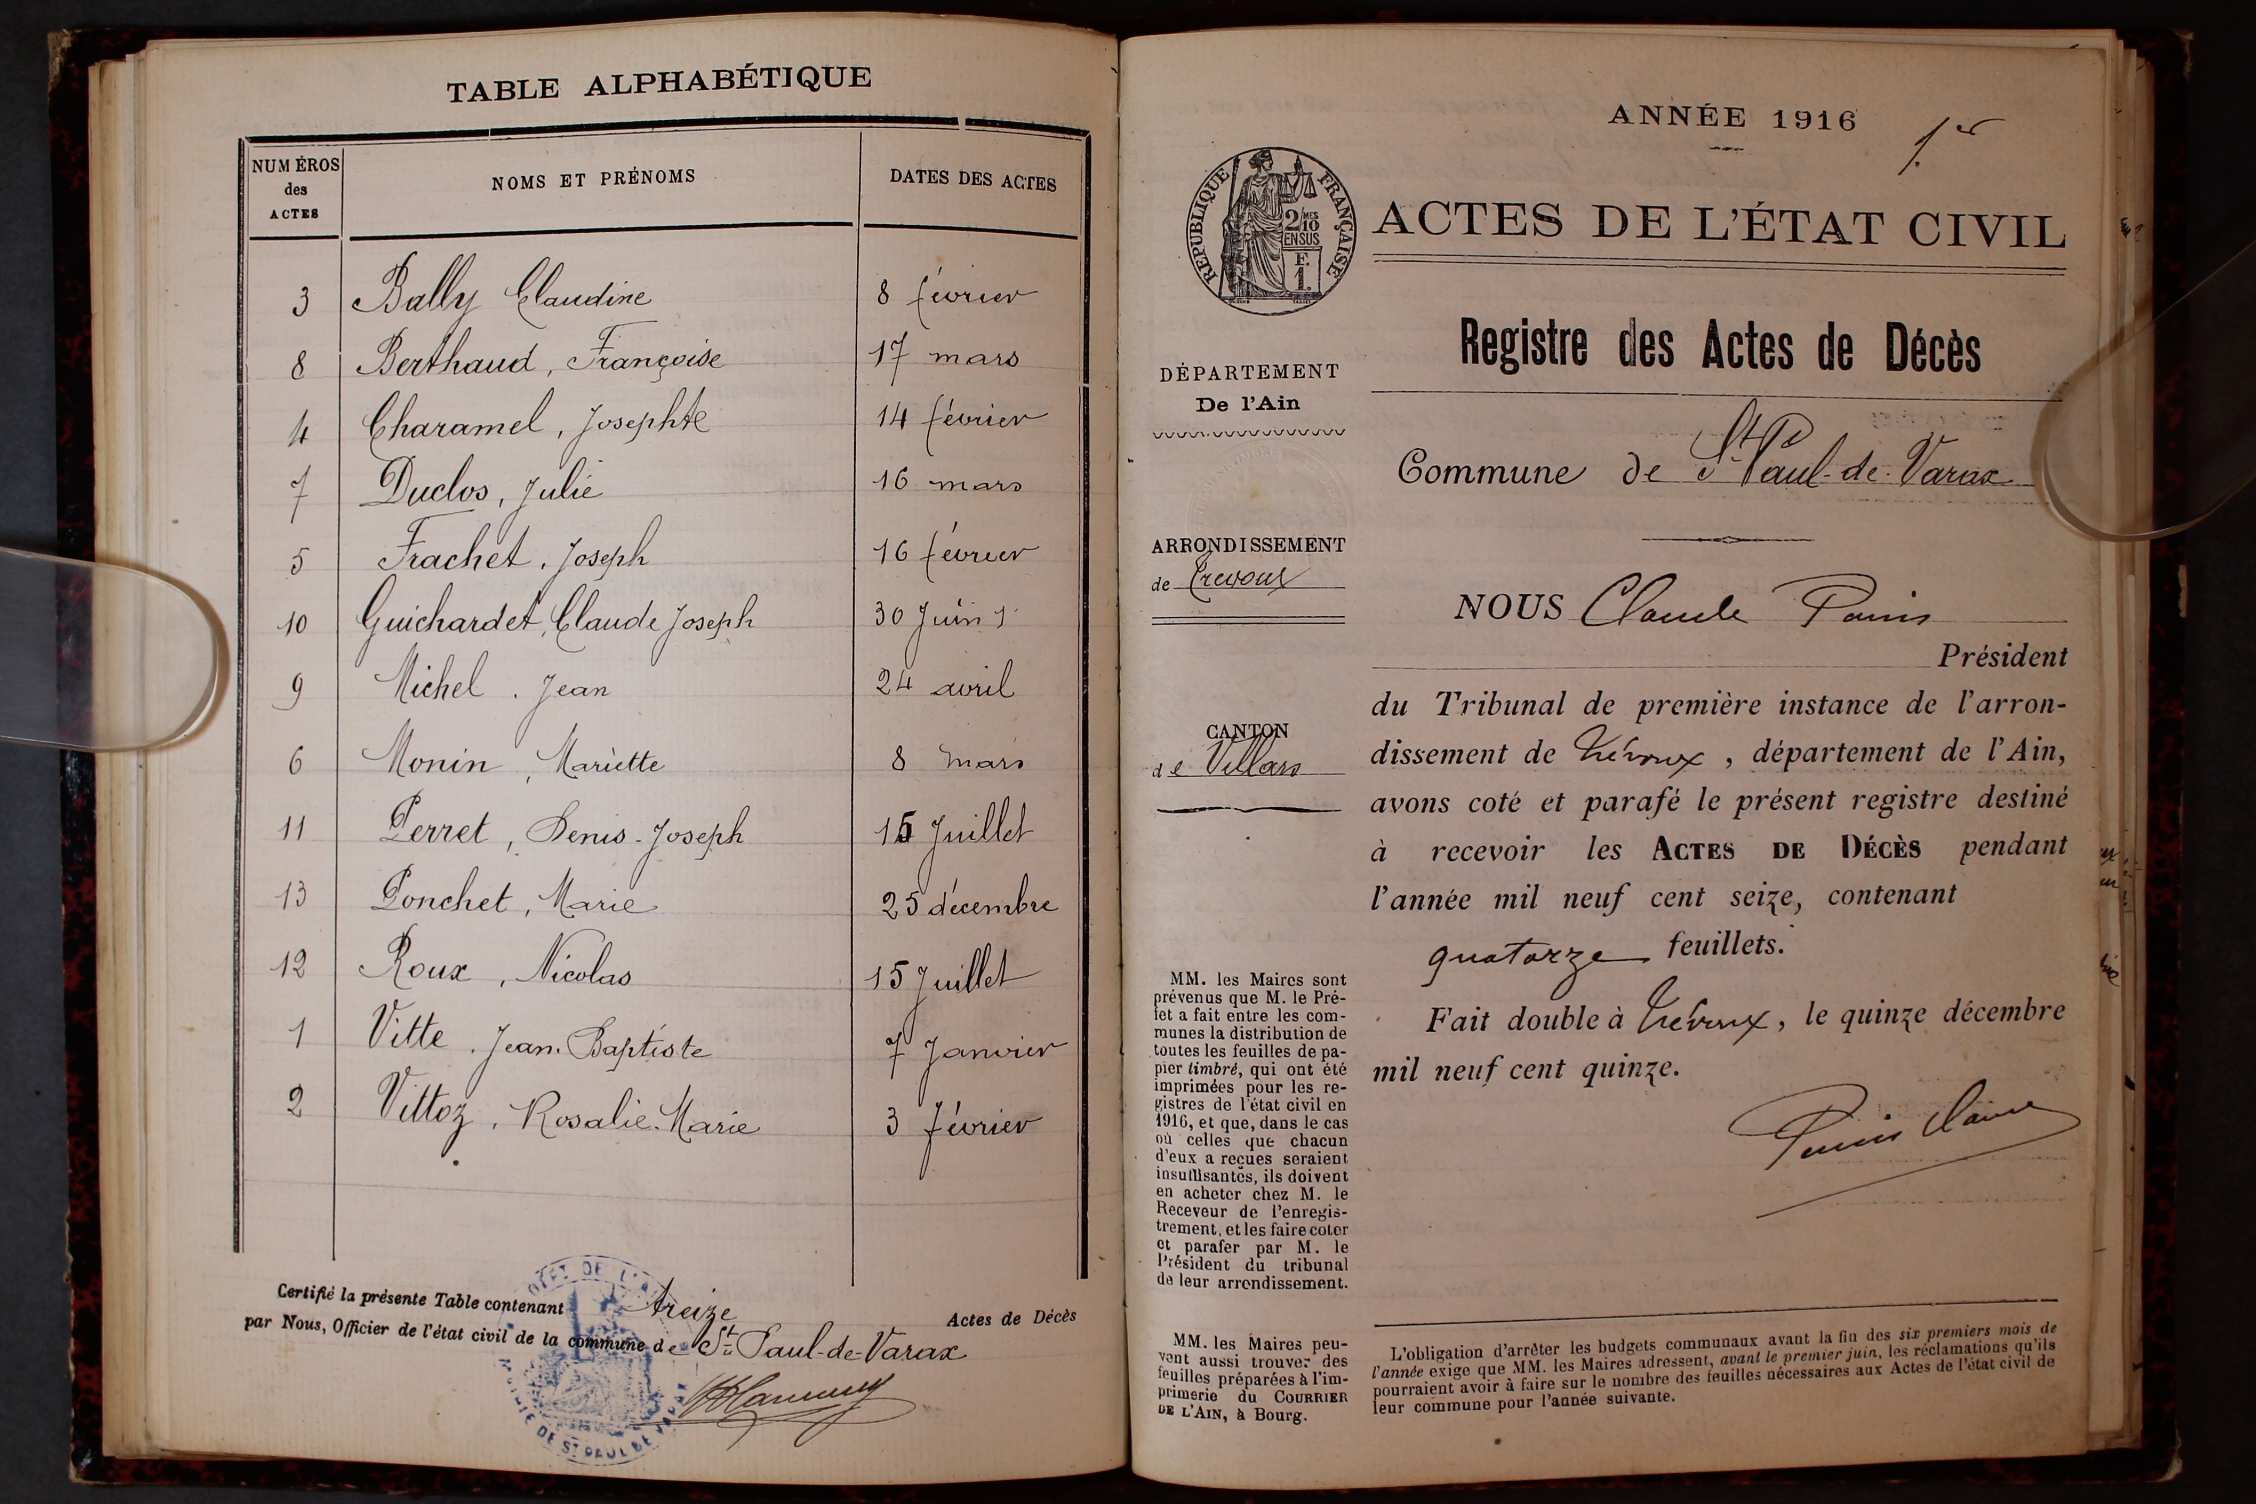 TABLE ALPHABÉTIQUE
NUMÉROS des ACTES
NOMS ET PRÉNOMS
DATES DES ACTES
3 Bally Claudine 8 février
8 Berthaud, Françoise 17 mars
4 Charamel, Josephte 14 février
7 Duclos, Julie 16 mars
5 Frachet, Joseph 16 février
10 Guichardet, Claude Joseph 30 Juin
9 Michel, Jean 24 avril
6 Monin, Mariette 8 mars
11 Perret, Denis-Joseph 15 Juillet
13 Ponchet, Marie 25 décembre
12 Roux, Nicolas 15 Juillet
1 Vitte, Jean-Baptiste 7 Janvier
2 Vittoz, Rosalie-Marie 3 février
Certifié la présente Table contenant treize Actes de Décès
par Nous, Officier de l'état civil de la commune de St Paul-de-Varax
ANNÉE 1916
1er
RÉPUBLIQUE FRANÇAISE
2/10MES
EN SUS
F.
1.
ACTES DE L'ÉTAT CIVIL
Registre des Actes de Décès
Commune de St Paul-de-Varax
DÉPARTEMENT
De l'Ain
ARRONDISSEMENT
de Trevoux
CANTON
de Villars
MM. les Maires sont
prévenus que M. le Pré-
fet a fait entre les com-
munes la distribution de
toutes les feuilles de pa-
pier timbré, qui ont été
imprimées pour les re-
gistres de l'état civil en
1916, et que, dans le cas
où celles que chacun
d'eux a reçues seraient
insuffisantes, ils doivent
en acheter chez M. le
Receveur de l'enregis-
trement, et les faire coter
et parafer par M. le
Président du tribunal
de leur arrondissement.
MM. les Maires peu-
vent aussi trouver des
feuilles préparées à l'im-
primerie du COURRIER
DE L'AIN, à Bourg.
NOUS Claude
Président
du Tribunal de première instance de l'arron-
dissement de Trévoux, département de l'Ain,
avons coté et parafé le présent registre destiné
à recevoir les ACTES DE DÉCÈS pendant
l'année mil neuf cent seize, contenant
quatorze feuillets.
Fait double à Trévoux, le quinze décembre
mil neuf cent quinze.
L'obligation d'arrêter les budgets communaux avant la fin des six premiers mois de
l'année exige que MM. les Maires adressent, avant le premier juin, les réclamations qu'ils
pourraient avoir à faire sur le nombre des feuilles nécessaires aux Actes de l'état civil de
leur commune pour l'année suivante.